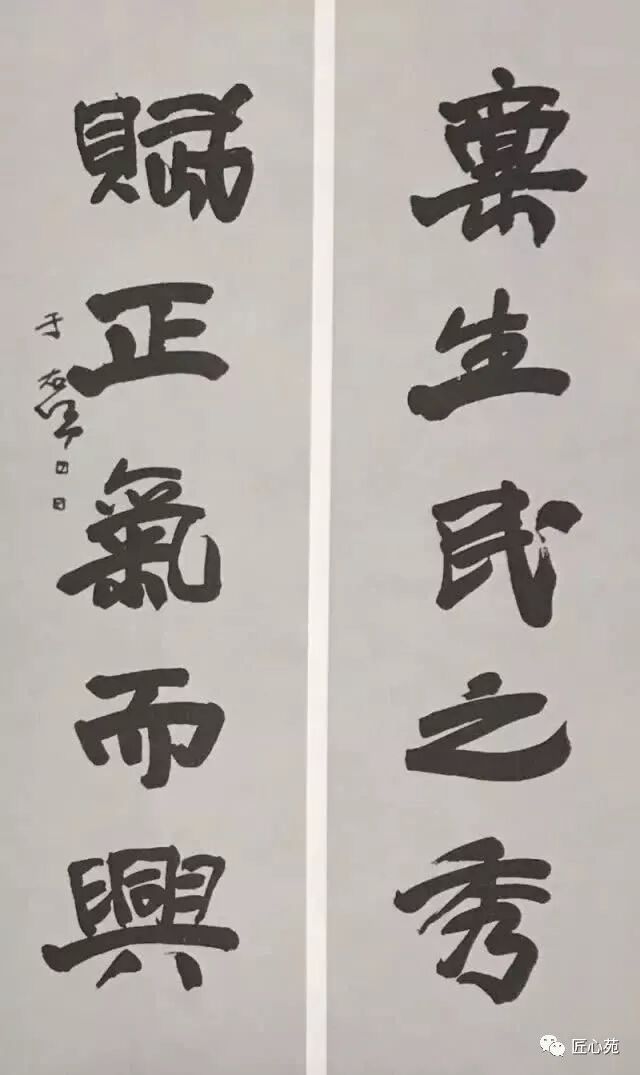 稟生民之秀
賦正氣而興
于右任
匠心苑